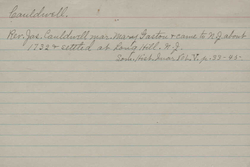 Cauldwell.
Rev. Jos. Cauldwell mar. Mary Gaston & came to N.J. about
1732 & settled at Long Hill, N.J.
Som. Hist. Quar. Vol. V. p. 37-45.